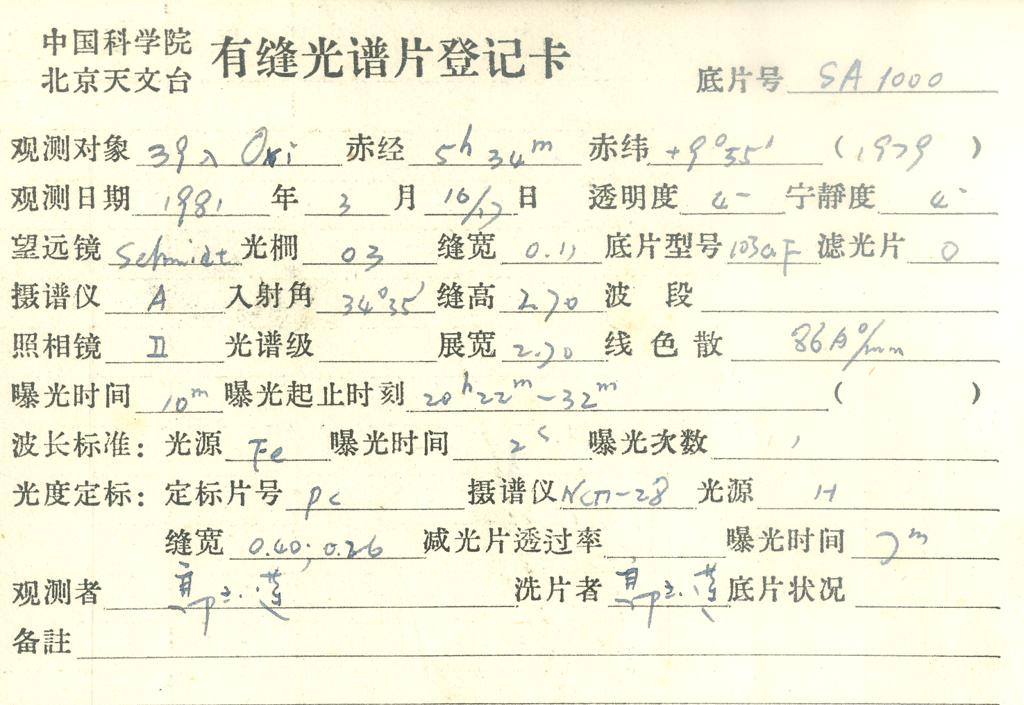 中国科学院
北京天文台
有缝光谱片登记卡
底片号 SA 1000
观测对象 39 λ Ori 赤经 5h 34m 赤纬 +9°55′ (1979)
观测日期 1981 年 3 月 16/17 日 透明度 4- 宁静度 4-
望远镜 Schmidt 光栅 03 缝宽 0.11 底片型号 103aF 滤光片 0
摄谱仪 A 入射角 34°35′ 缝高 2.70 波段
照相镜 II 光谱级 展宽 2.70 线色散 86Å/mm
曝光时间 10m 曝光起止时刻 20h22m-32m ( )
波长标准: 光源 Fe 曝光时间 2s 曝光次数 1
光度定标: 定标片号 pc 摄谱仪 光源 H
缝宽 0.40; 0.26 减光片透过率 曝光时间 7m
观测者 洗片者 底片状况
备註